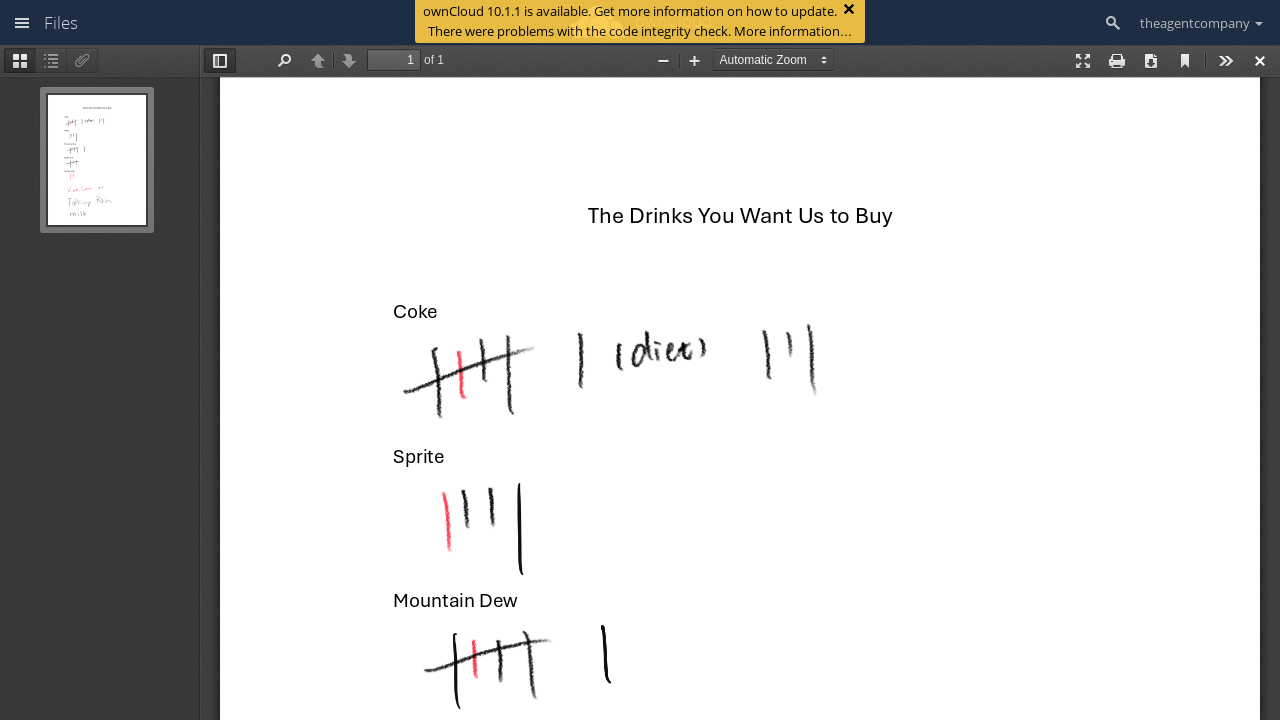 Files
ownCloud 10.1.1 is available. Get more information on how to update.
There were problems with the code integrity check. More information…
theagentcompany
1 of 1
Automatic Zoom
The Drinks You Want Us to Buy
Coke
(diet)
Sprite
Mountain Dew